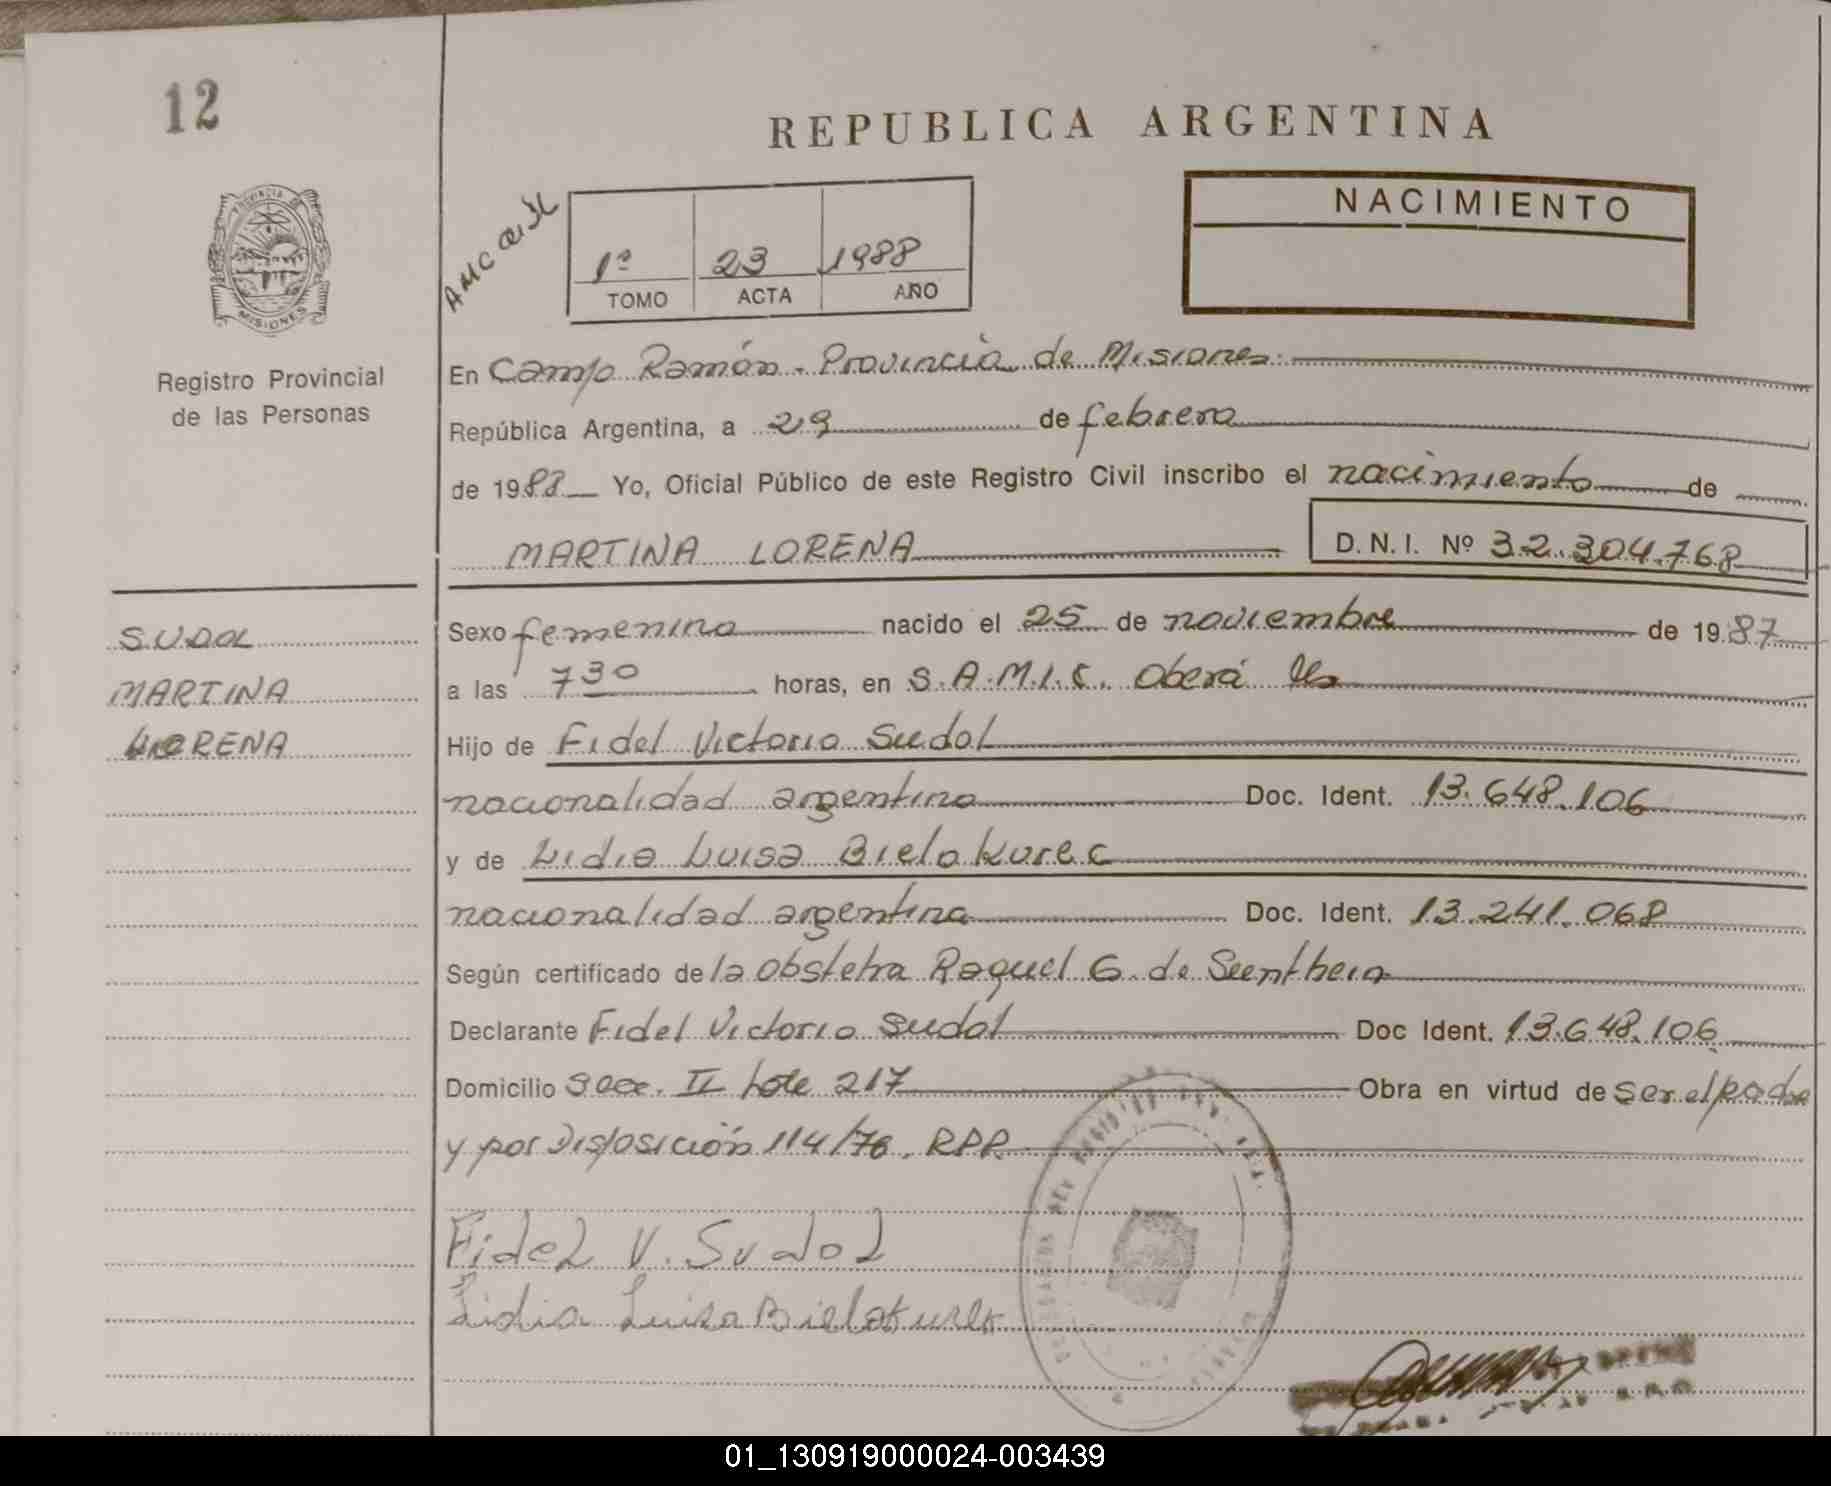 12
REPUBLICA ARGENTINA
PROVINCIA DE
MISIONES
Registro Provincial
de las Personas
1º 23 1988
TOMO ACTA AÑO
NACIMIENTO
En Campo Ramón. Provincia de Misiones.
República Argentina, a 29 de febrero
de 1988 Yo, Oficial Público de este Registro Civil inscribo el nacimiento de
MARTINA LORENA D.N.I. Nº 32.304.768
SUDOL
MARTINA
LORENA
Sexo femenino nacido el 25 de noviembre de 1987
a las 730 horas, en S.A.M.I.C. Oberá
Hijo de Fidel Victorio Sudol
nacionalidad argentina Doc. Ident. 13.648.106
y de Lidia Luisa Bielakurec
nacionalidad argentina Doc. Ident. 13.241.068
Según certificado de la obstetra Raquel G. de
Declarante Fidel Victorio Sudol Doc Ident. 13.648.106
Domicilio Secc. II Lote 217 Obra en virtud de ser el padre
y por Disposición 114/76. RPP.
Fidel V. Sudol
Lidia Luisa
01_130919000024-003439